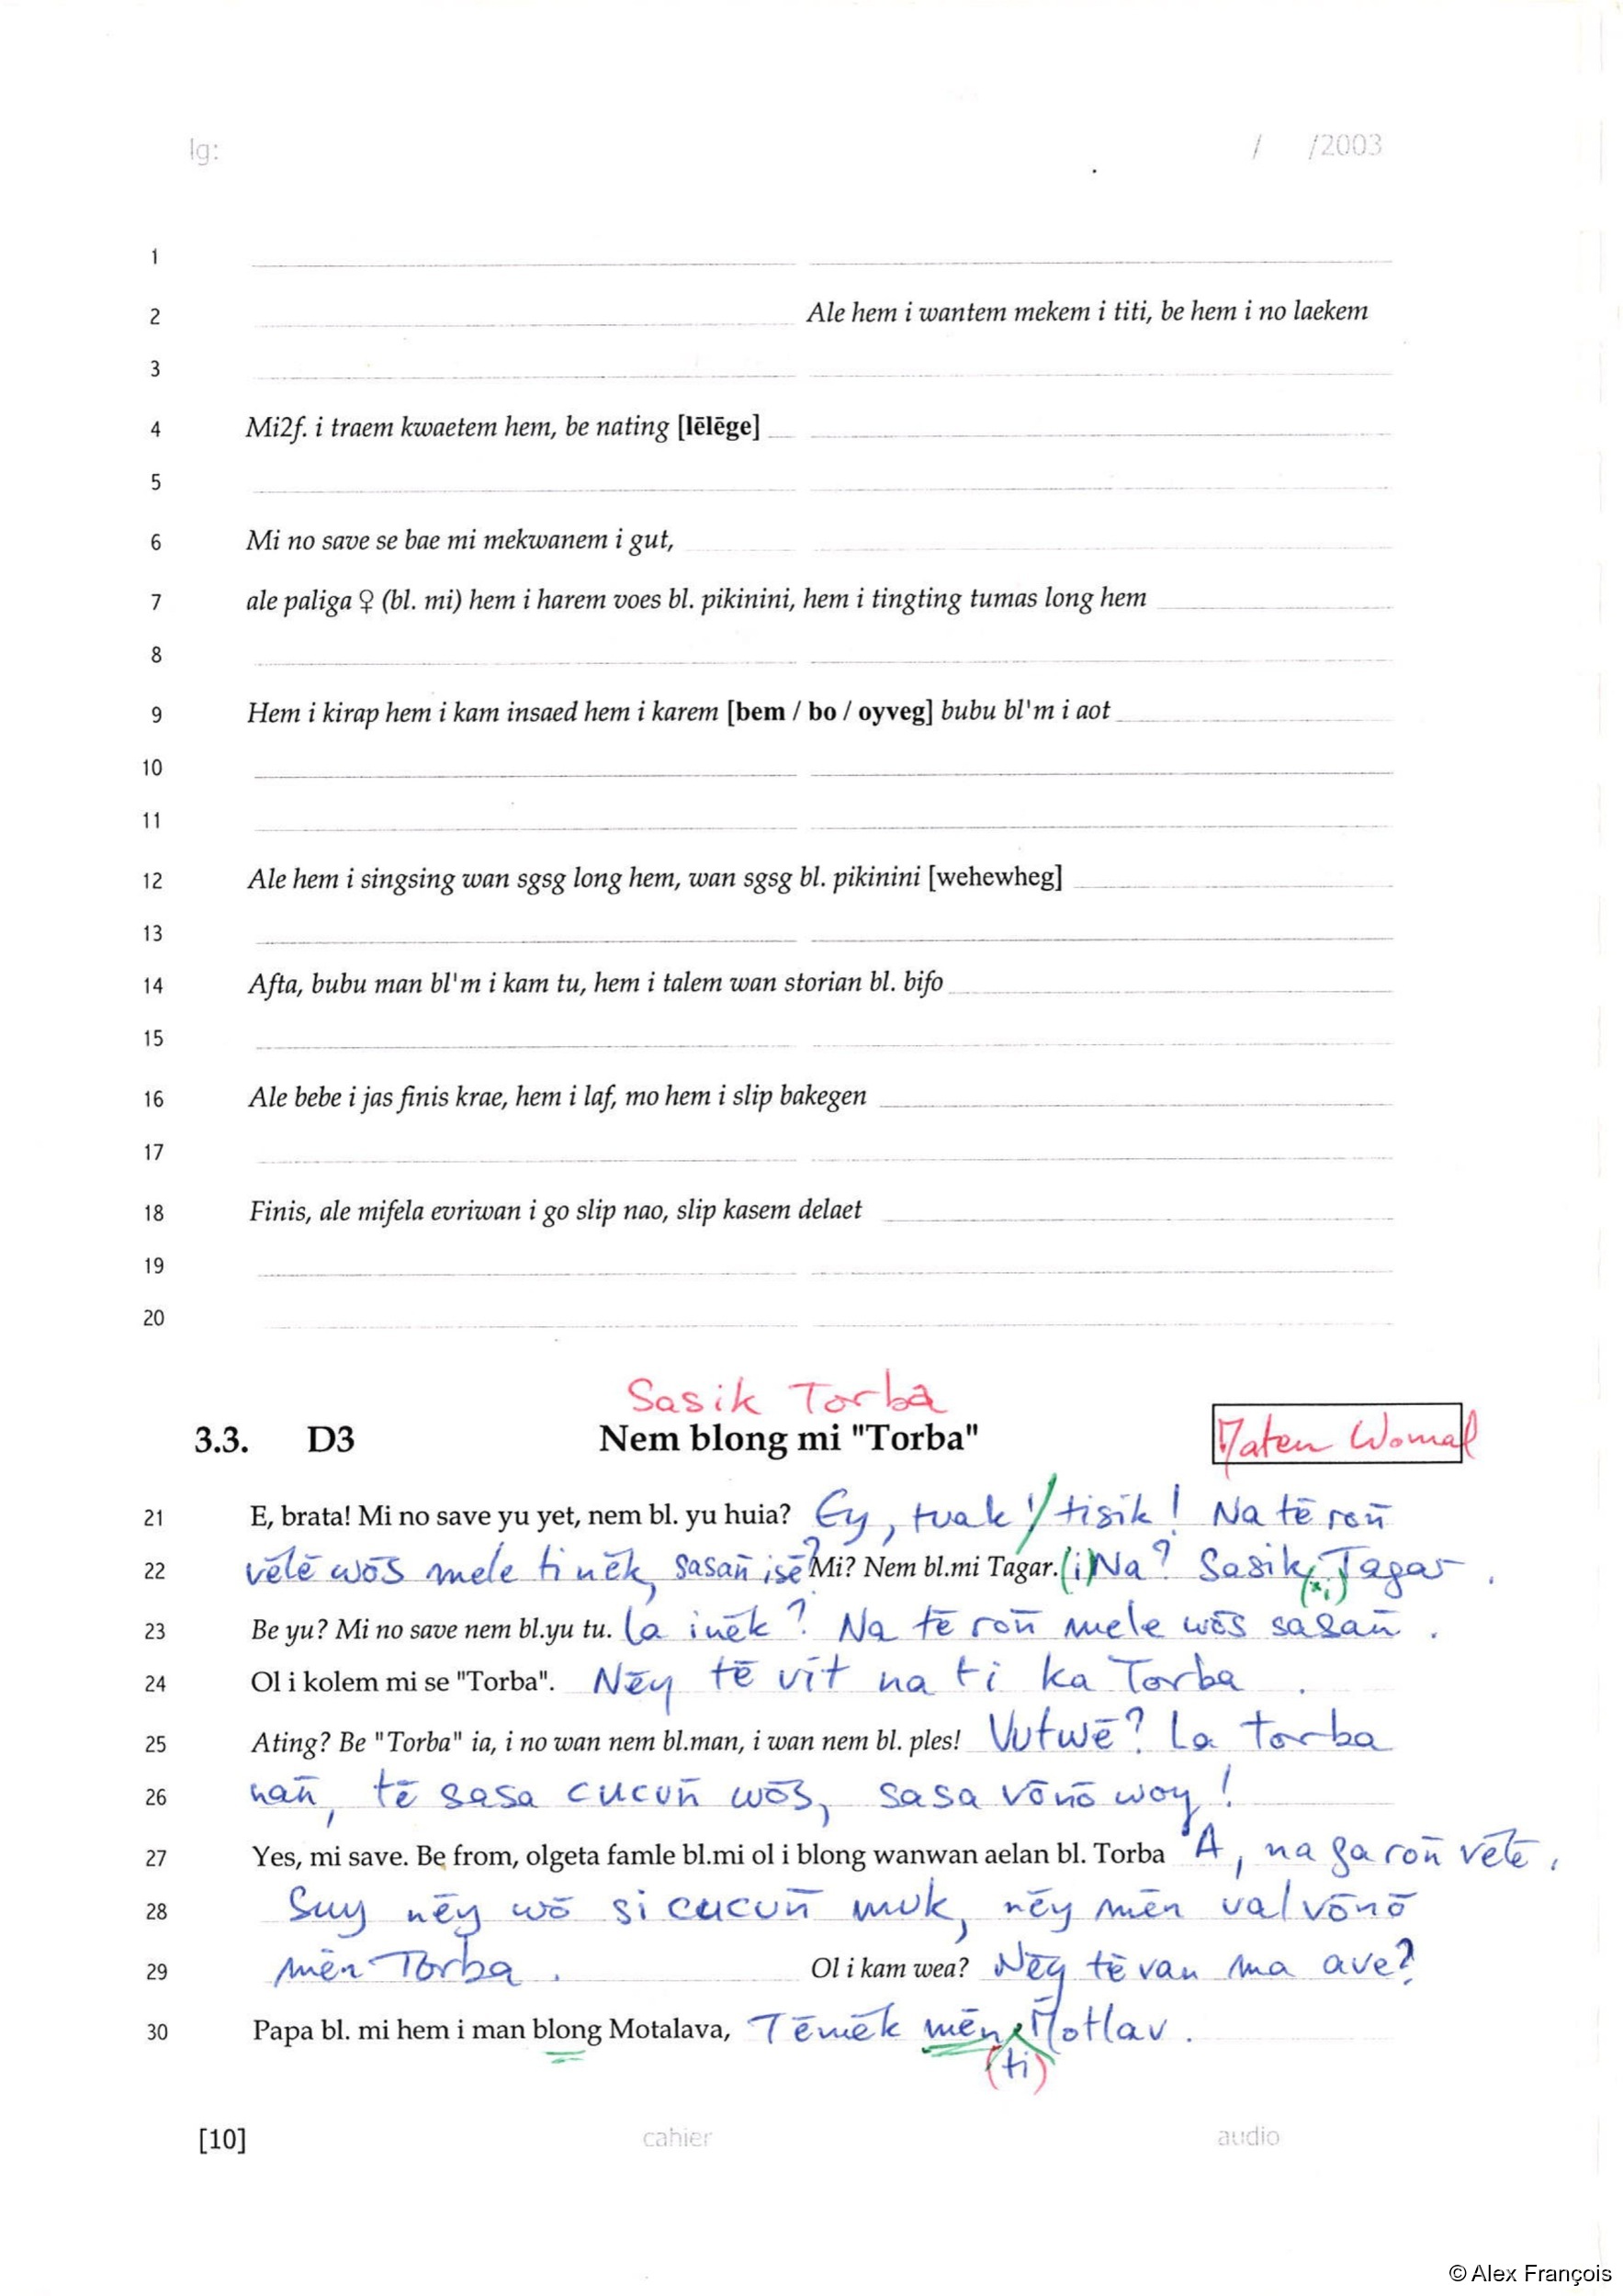 lg: / /2003
1
2 Ale hem i wantem mekem i titi, be hem i no laekem
3
4 Mi2f. i traem kwaetem hem, be nating [lēlēge]
5
6 Mi no save se bae mi mekwanem i gut,
7 ale paliga ♀ (bl. mi) hem i harem voes bl. pikinini, hem i tingting tumas long hem
8
9 Hem i kirap hem i kam insaed hem i karem [bem / bo / oyveg] bubu bl'm i aot
10
11
12 Ale hem i singsing wan sgsg long hem, wan sgsg bl. pikinini [wehewheg]
13
14 Afta, bubu man bl'm i kam tu, hem i talem wan storian bl. bifo
15
16 Ale bebe i jas finis krae, hem i laf, mo hem i slip bakegen
17
18 Finis, ale mifela evriwan i go slip nao, slip kasem delaet
19
20
Sasik Torba
3.3. D3 Nem blong mi "Torba" Maten Womal
21 E, brata! Mi no save yu yet, nem bl. yu huia? Ey, tuak / tisik! Na tē ron̄
22 vēlē wōs mele ti nēk, sasan̄ isē? Mi? Nem bl.mi Tagar. (i) Na? Sasik Tagar.
(*i)
23 Be yu? Mi no save nem bl.yu tu. La inēk? Na tē ron̄ mele wōs sasan̄.
24 Ol i kolem mi se "Torba". Nēy tē vit na ti ka Torba.
25 Ating? Be "Torba" ia, i no wan nem bl.man, i wan nem bl. ples! Vutwē? La Torba
26 nan̄, tē sasa cucun̄ wōs, sasa vōnō woy!
27 Yes, mi save. Be from, olgeta famle bl.mi ol i blong wanwan aelan bl. Torba A, na ga ron̄ vētē.
28 Suy nēy wō si cucun̄ muk, nēy mēn val vōnō
29 mēn Torba. Ol i kam wea? Nēy tē van ma ave?
30 Papa bl. mi hem i man blong Motalava, Tēmēk mēn M̄otlav.
(ti)
[10] cahier audio
© Alex François